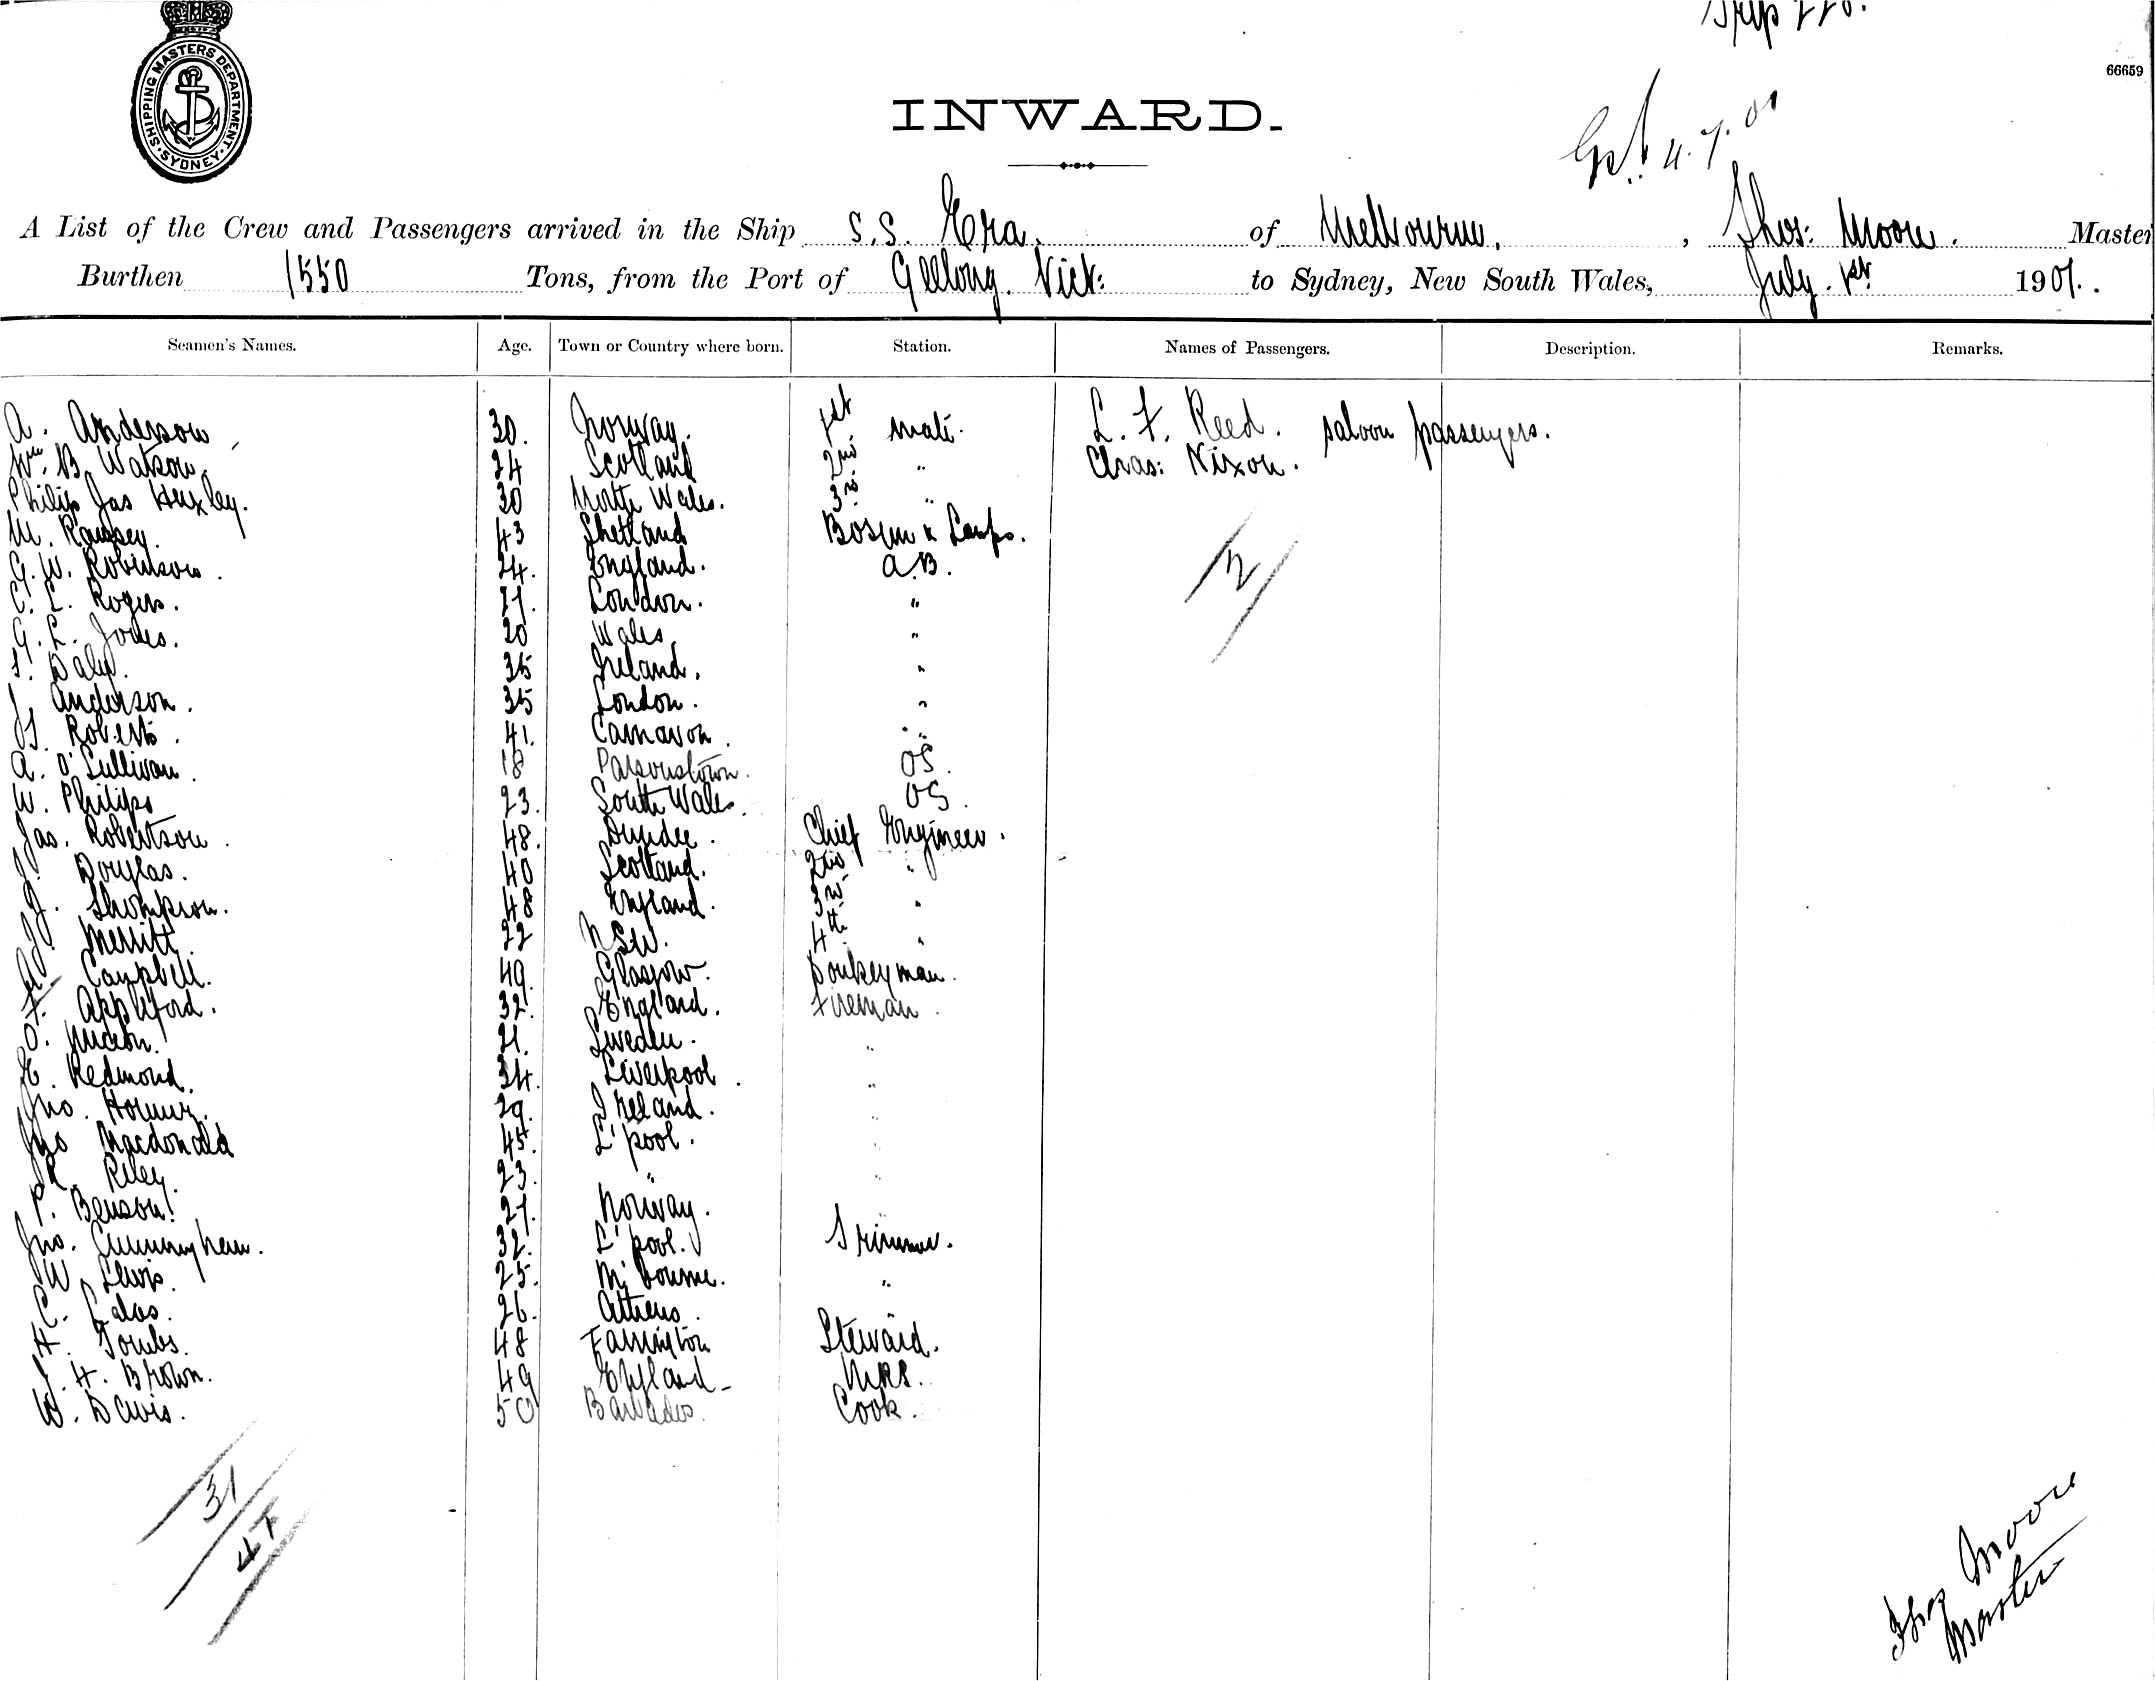 SHIPPING MASTERS DEPARTMENT. SYDNEY
Trip 226.
66659
INWARD.
4.7.01
A List of the Crew and Passengers arrived in the Ship S.S. Era. of Melbourne, Thos: Moore. Master
Burthen 1550 Tons, from the Port of Geelong. Vict: to Sydney, New South Wales, July. 1st 1901.
Seamen's Names. Age. Town or Country where born. Station. Names of Passengers. Description. Remarks.
A. Anderson 30. Norway. 1st Mate. L. F. Reed. saloon passengers.
Wm. B. Watson. 24 Scotland 2nd " Chas: Nixon.
Philip Jas Huxley. 30 North Wales. 3rd "
M. Ramsey. 43 Shetland Bosun & Lamps.
G. W. Robinson. 24. England. A.B. 2
C. L. Rogers. 27. London. "
G. L. Jones. 20 Wales. "
Daly. 35 Ireland. "
Anderson. 35 London. "
Roberts. 41. Carnavon. "
A. O'Sullivan. 18 Parsonstown. OS.
W. Philips 23. South Wales. OS.
Jas. Robertson. 48. Dundee. Chief Engineer.
J. Douglas. 40 Scotland. 2nd "
J. Thompson. 48 England. 3rd "
J. Merritt. 22 NSW. 4th "
Campbell. 49. Glasgow. Donkeyman.
Appleford. 32. England. Fireman.
O. 21. Sweden. "
E. Redmond. 34. Liverpool. "
Jno. 29. Ireland. "
Jno Macdonald 45. L'pool. "
R. Riley. 23. " "
P. Benson. 27. Norway. "
Jno. Cunningham. 32. L'pool. Trimmer.
W Lewis. 25. M'bourne. "
C. 26. Athens. "
H. Tombs. 48 Farrington Steward.
H. Brown. 49 England. M&S.
W. Davis. 50 Barbados. Cook.
31
47
Thos Moore
Master